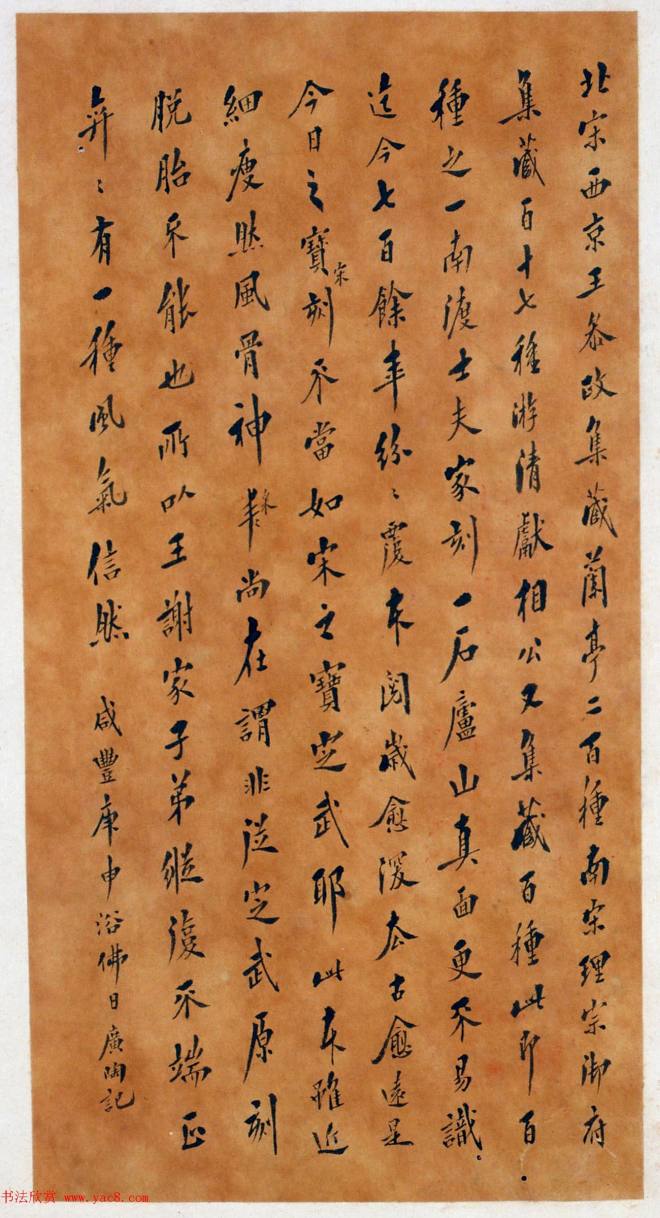 北宋西京王參政集藏蘭亭二百種南宋理宗御府
集藏百十七種游清獻相公又集藏百種此即百
種之一南渡士夫家刻一石廬山真面更不易識
迄今七百餘年紛〻覆本閱歲愈深太古愈遠是
今日之寶宋刻不當如宋之寶定武耶此本雖近
細瘦然風骨神采尚在謂非從定武原刻
脫胎不能也所以王謝家子弟縱復不端正
奕〻有一種風氣信然
咸豐庚申浴佛日廣陶記
书法欣赏 www.yac8.com